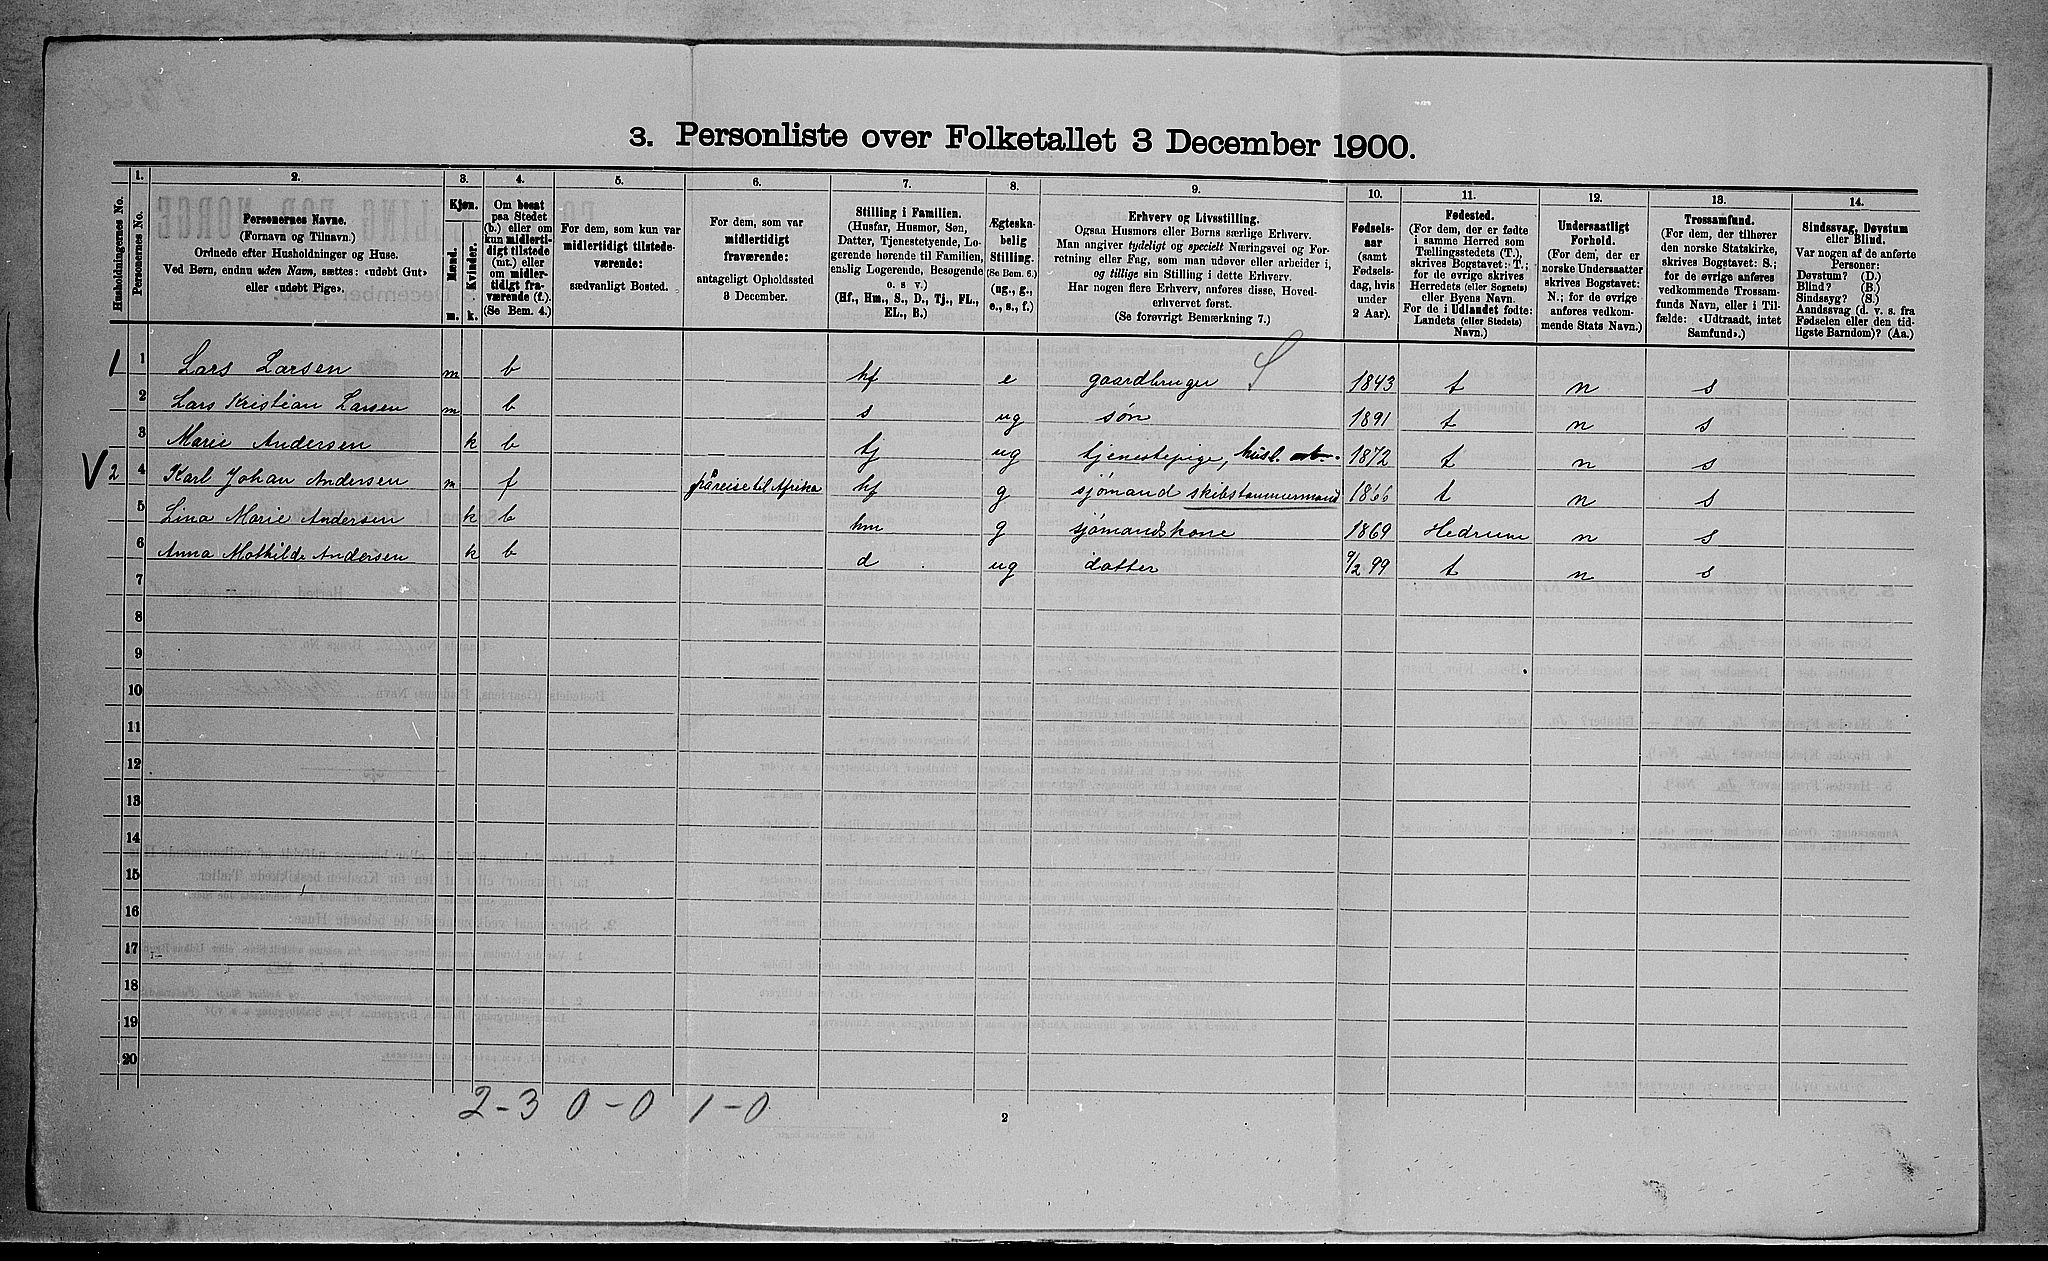 3. Personliste over Folketallet 3 December 1900.
Husholdningernes No.
1.
Personernes No.
2.
Personernes Navne.
(Fornavn og Tilnavn.)
Ordnede efter Husholdninger og Huse.
Ved Børn, endnu uden Navn, sættes: «udøbt Gut»
eller «udøbt Pige».
3.
Kjøn.
Mænd.
m.
Kvinder.
k.
4.
Om bosat
paa Stedet
(b.) eller om
kun midlerti-
digt tilstede
(mt.) eller
om midler-
tidigt fra-
værende (f.).
(Se Bem. 4.)
5.
For dem, som kun var
midlertidigt tilstede-
værende:
sædvanligt Bosted.
6.
For dem, som var
midlertidigt
fraværende:
antageligt Opholdssted
3 December.
7.
Stilling i Familien.
(Husfar, Husmor, Søn,
Datter, Tjenestetyende, Lo-
gerende hørende til Familien,
enslig Logerende, Besøgende
o. s v.)
(Hf., Hm., S., D., Tj., FL.,
EL., B.)
8.
Ægteska-
belig
Stilling.
(Se Bem. 6.)
(ug., g.,
e., s., f.)
9.
Erhverv og Livsstilling.
Ogsaa Husmors eller Børns særlige Erhverv.
Man angiver tydeligt og specielt Næringsvei og For-
retning eller Fag, som man udøver eller arbeider i,
og tillige sin Stilling i dette Erhverv.
Har nogen flere Erhverv, anføres disse, Hoved-
erhvervet først.
(Se forøvrigt Bemærkning 7.)
10.
Fødsels-
aar
(samt
Fødsels-
dag, hvis
under
2 Aar).
11.
Fødested.
(For dem, der er fødte
i samme Herred som
Tællingsstedets (T.),
skrives Bogstavet: T.;
for de øvrige skrives
Herredets (eller Sognets)
eller Byens Navn.
For de i Udlandet fødte:
Landets (eller Stedets)
Navn.)
12.
Undersaatligt
Forhold.
(For dem, der er
norske Undersaatter
skrives Bogstavet:
N.; for de øvrige
anføres vedkom-
mende Stats Navn.)
13.
Trossamfund.
(For dem, der tilhører
den norske Statskirke,
skrives Bogstavet: S.;
for de øvrige anføres
vedkommende Trossam-
funds Navn, eller i Til-
fælde: «Udtraadt, intet
Samfund».)
14.
Sindssvag, Døvstum
eller Blind.
Var nogen af de anførte
Personer:
Døvstum? (D.)
Blind? (B.)
Sindssyg? (S.)
Aandssvag (d. v. s. fra
Fødselen eller den tid-
ligste Barndom)? (Aa.)
1 1 Lars Larsen m b hf e gaardbruger S 1843 t n s
2 Lars Kristian Larsen m b s ug søn 1891 t n s
3 Marie Andersen k b tj ug tjenestepige, husl. arb. 1872 t n s
V 2 4 Karl Johan Andersen m f på reise til Afrika hf g sjømand skibstømmermand 1866 t n s
5 Lina Marie Andersen k b hm g sjømandskone 1869 Hedrum n s
6 Anna Mathilde Andersen k b d ug datter 9/2 99 t n s
7
8
9
10
11
12
13
14
15
16
17
18
19
20
2-3 0-0 1-0
2